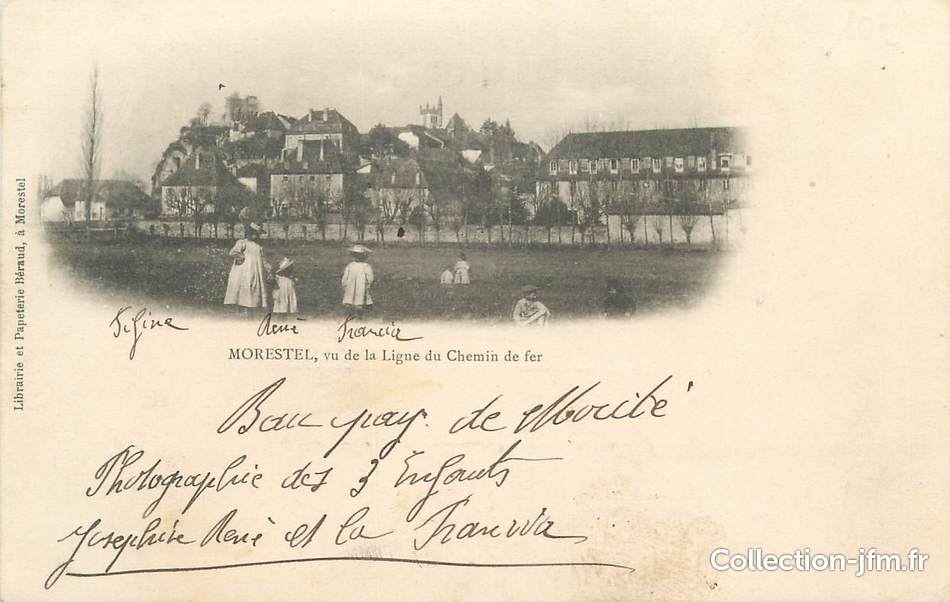 Librairie et Papeterie Béraud, à Morestel
Fifine René Francia
MORESTEL, vu de la Ligne du Chemin de fer
pay de
Photographie des 3 Enfants
Josephine René et la Francia
Collection-jfm.fr